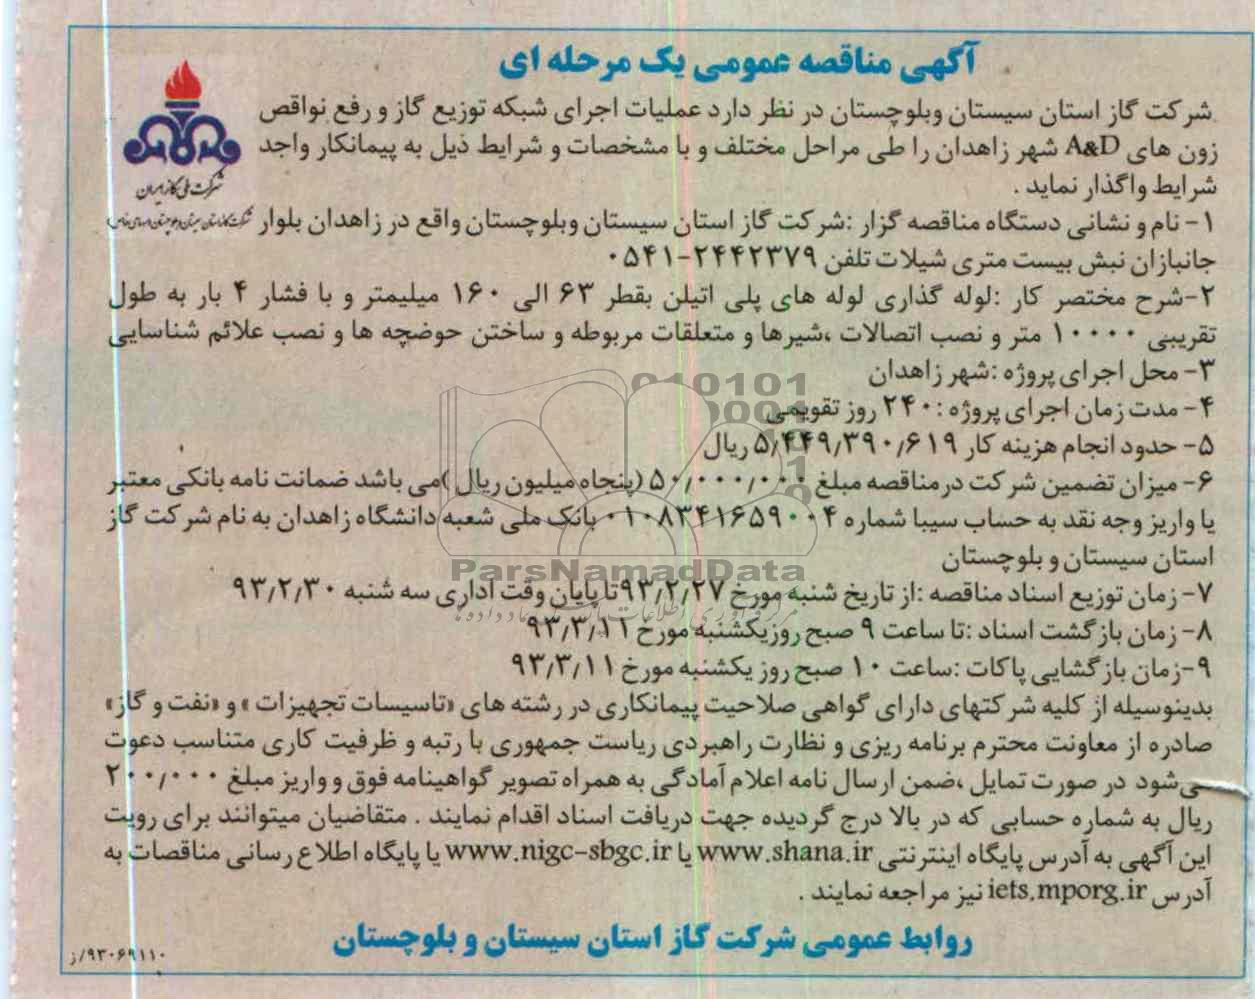 آگهی مناقصه عمومی یک مرحله ای
شرکت گاز استان سیستان وبلوچستان در نظر دارد عملیات اجرای شبکه توزیع گاز و رفع نواقص
زون های A&D شهر زاهدان را طی مراحل مختلف و با مشخصات و شرایط ذیل به پیمانکار واجد
شرایط واگذار نماید .
شرکت ملی گاز ایران
۱- نام و نشانی دستگاه مناقصه گزار :شرکت گاز استان سیستان وبلوچستان واقع در زاهدان بلوار
جانبازان نبش بیست متری شیلات تلفن ۲۴۴۲۳۷۹-۰۵۴۱
۲-شرح مختصر کار :لوله گذاری لوله های پلی اتیلن بقطر ۶۳ الی ۱۶۰ میلیمتر و با فشار ۴ بار به طول
تقریبی ۱۰۰۰۰ متر و نصب اتصالات ،شیرها و متعلقات مربوطه و ساختن حوضچه ها و نصب علائم شناسایی
۳- محل اجرای پروژه :شهر زاهدان
۴- مدت زمان اجرای پروژه :۲۴۰ روز تقویمی
۵- حدود انجام هزینه کار ۵/۴۴۹/۳۹۰/۶۱۹ ریال
۶- میزان تضمین شرکت درمناقصه مبلغ ۵۰/۰۰۰/۰۰۰ (پنجاه میلیون ریال )می باشد ضمانت نامه بانکی معتبر
یا واریز وجه نقد به حساب سیبا شماره ۰۱۰۸۳۴۱۶۵۹۰۰۴ بانک ملی شعبه دانشگاه زاهدان به نام شرکت گاز
استان سیستان و بلوچستان
ParsNamadData
۷- زمان توزیع اسناد مناقصه :از تاریخ شنبه مورخ ۹۳/۲/۲۷تا پایان وقت اداری سه شنبه ۹۳/۲/۳۰
۸- زمان بازگشت اسناد :تا ساعت ۹ صبح روزیکشنبه مورخ ۹۳/۳/۱۱
۹-زمان بازگشایی پاکات :ساعت ۱۰ صبح روز یکشنبه مورخ ۹۳/۳/۱۱
بدینوسیله از کلیه شرکتهای دارای گواهی صلاحیت پیمانکاری در رشته های «تاسیسات تجهیزات » و «نفت و گاز»
صادره از معاونت محترم برنامه ریزی و نظارت راهبردی ریاست جمهوری با رتبه و ظرفیت کاری متناسب دعوت
می‌شود در صورت تمایل ،ضمن ارسال نامه اعلام آمادگی به همراه تصویر گواهینامه فوق و واریز مبلغ ۲۰۰/۰۰۰
ریال به شماره حسابی که در بالا درج گردیده جهت دریافت اسناد اقدام نمایند . متقاضیان میتوانند برای رویت
این آگهی به آدرس پایگاه اینترنتی www.shana.ir یا www.nigc-sbgc.ir یا پایگاه اطلاع رسانی مناقصات به
آدرس iets.mporg.ir نیز مراجعه نمایند .
روابط عمومی شرکت گاز استان سیستان و بلوچستان
۹۳۰۶۹۱۱۰/ز